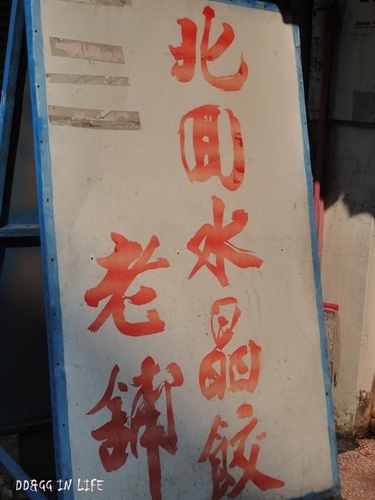 北回水晶餃
老舖
DD&GG IN LIFE